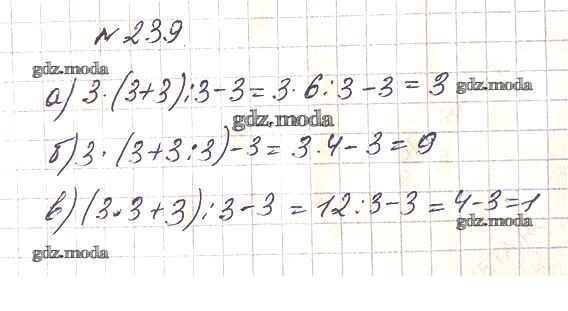 №239.
gdz.moda
а) 3·(3+3):3-3=3·6:3-3=3 gdz.moda
gdz.moda
б) 3·(3+3:3)-3=3·4-3=9
в) (3·3+3):3-3=12:3-3=4-3=1
gdz.moda
gdz.moda